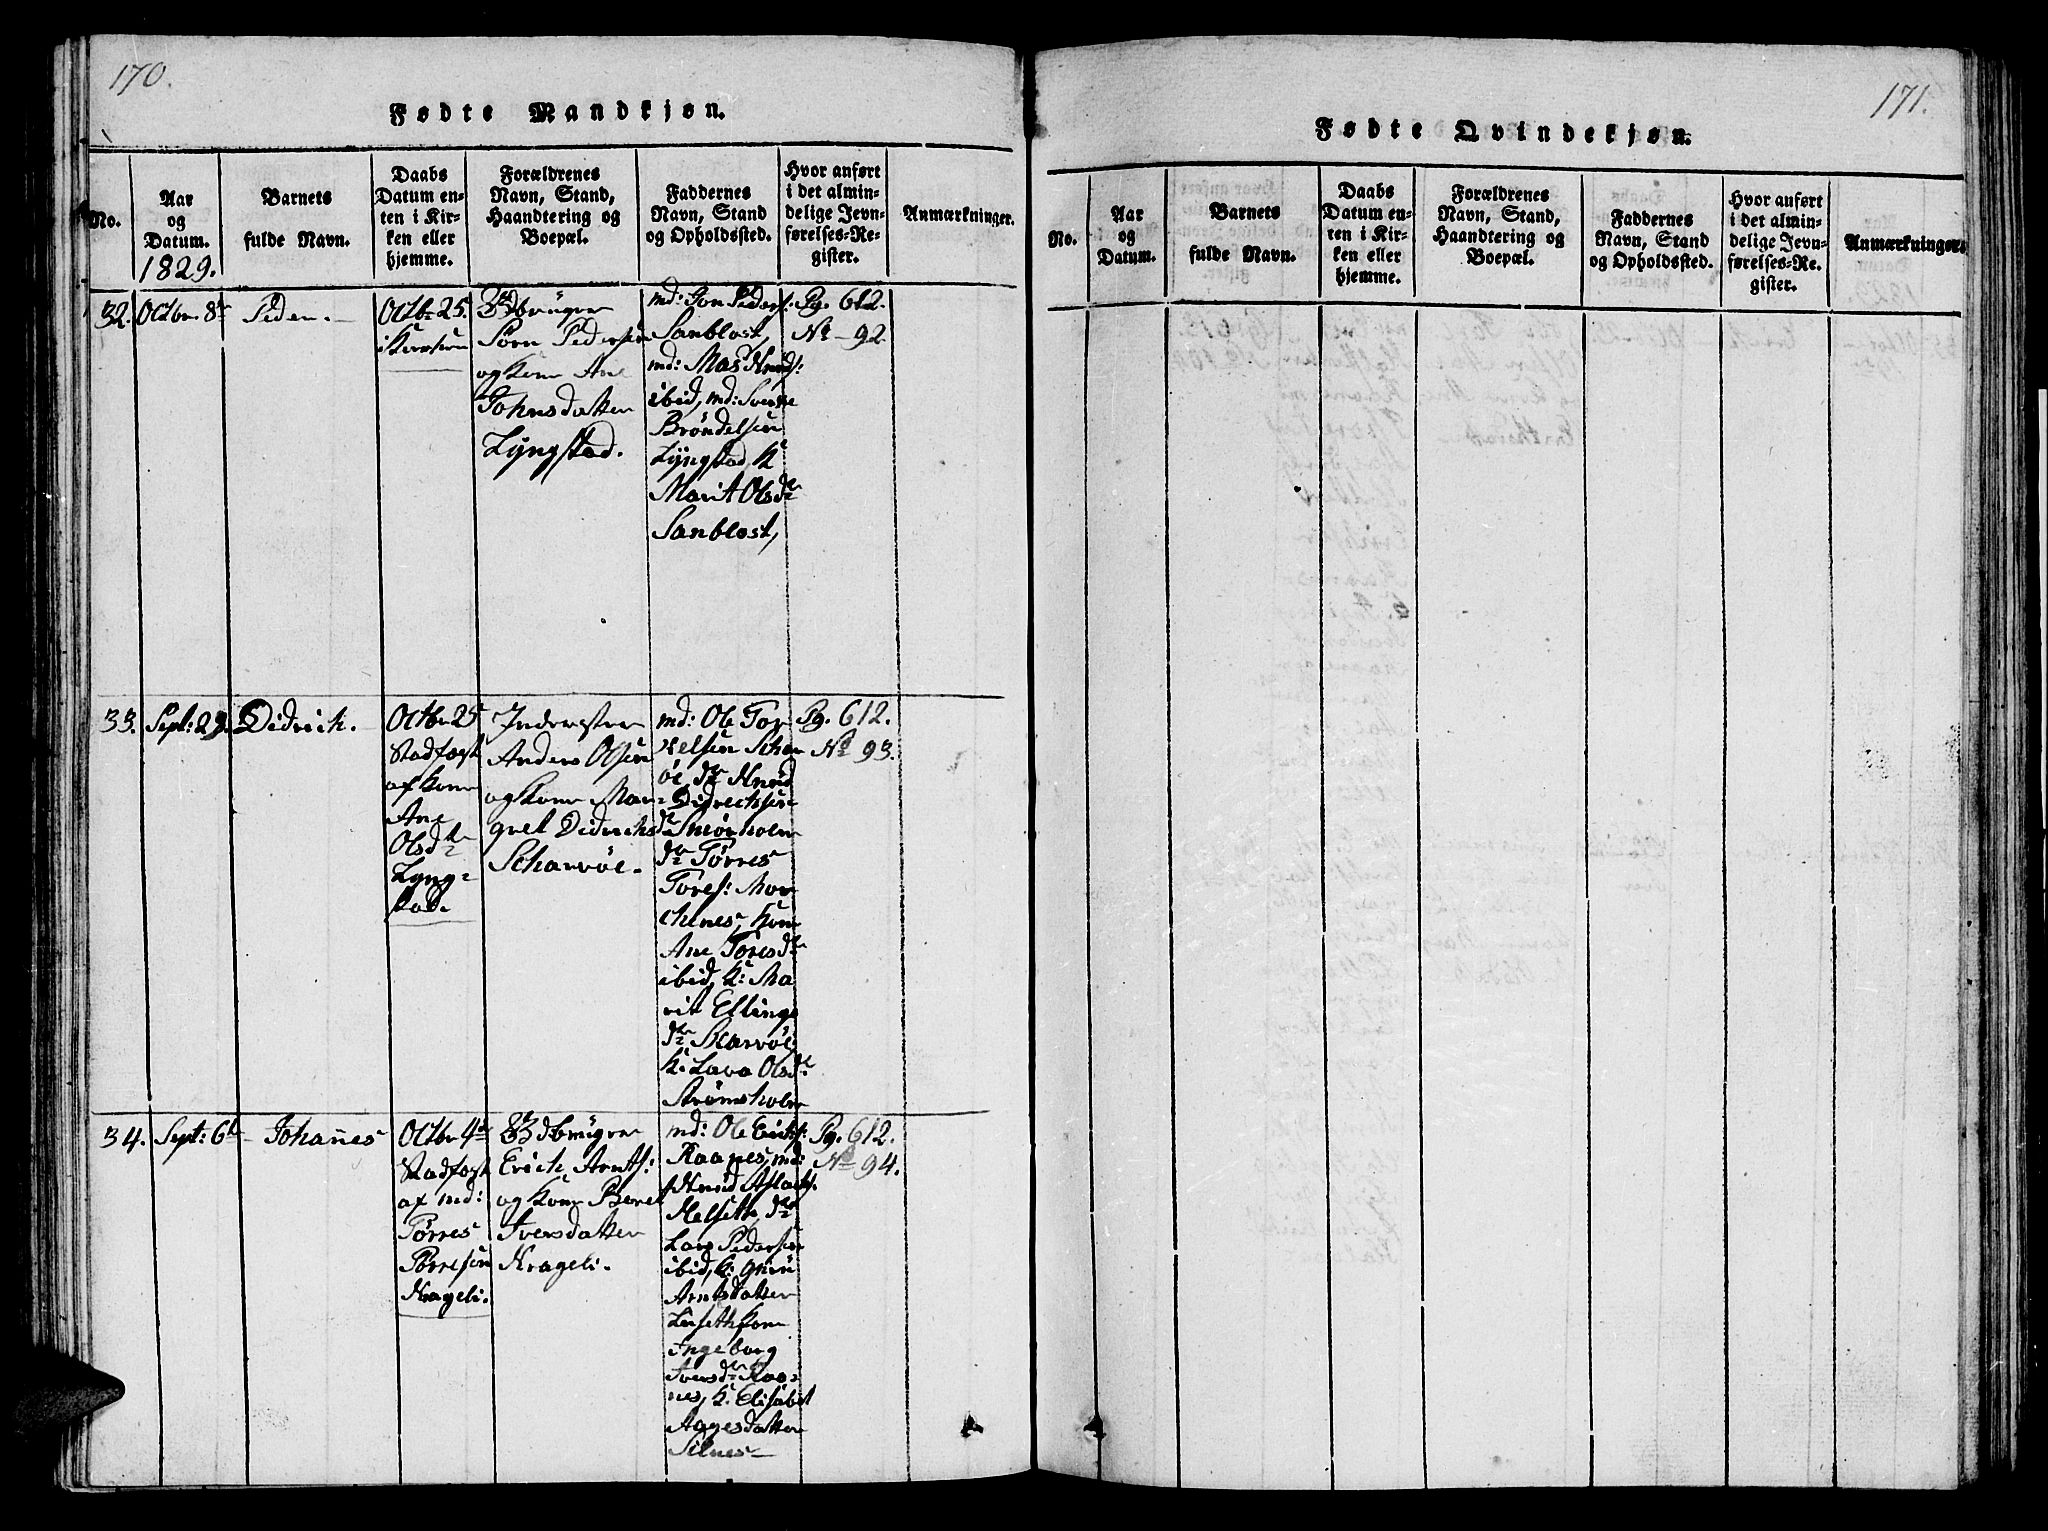 170.
Fødte Mandkjøn.
No.
Aar
og
Datum.
1829.
Barnets
fulde Navn.
Daabs
Datum en-
ten i Kir-
ken eller
hjemme.
Forældrenes
Navn, Stand,
Haandtering og
Boepæl.
Faddernes
Navn, Stand
og Opholdssted.
Hvor anført
i det almin-
delige Jevn-
førelses-Re-
gister.
Anmærkninger.
32.
Octbr 8de
Peder.
Octbr 25.
i Kirken
Gdbruger
Sørn Pedersen
og Kone Ane
Johnsdatter
Lyngstad.
md: Jon Peders:
Sanblost,
md: Mas Knuds:
ibid, md: Sverke
Brøndelsen
Lyngstad, K:
Marit Olsdr
Sanblost,
Pg. 612.
No 92.
33.
Sept: 29.
Didrich.
Octbr 25
Stadfæst
af Kone
Ane
Olsdtr
Lyng-
stad.
Inderster
Anders Olsen
og Kone Mar-
gret Didrichsdr
Scharvöe.
md: Ole Tor
Kelsen Schar
öe dr Knud
Didrechsen
Smörholm
dr Tørres
Tores: Mor
chenes, Kone
Ane Toresdr
ibid, K: Ma
rit Ellings
dtr Skarvöe
K: Lava Olsdr
Strømsholm
Pg. 612.
No 93.
34.
Sept: 6te
Johannes
Octbr 4de
Stadfæst
af md:
Tørres
Törresen
Krageli.
Gdbruger
Erich Arnts:
og Kone Beret
Iversdatter
Krageli.
md: Ole Erichs:
Raanes, md:
Knud Aslachs:
Helsette, dr
Lars Pedersen
ibid, K: Guru
Arntsdatter
Liseth Kone
Ingeborg
Iversdr Raa-
nes, K. Elisabet
Aagesdatter
Silnes
Pg. 612.
No 94.
171.
Fødte Qvindekjøn.
No.
Aar
og
Datum.
Barnets
fulde Navn.
Daabs
Datum en-
ten i Kir-
ken eller
hjemme.
Forældrenes
Navn, Stand,
Haandtering og
Boepæl.
Faddernes
Navn, Stand
og Opholdssted.
Hvor anført
i det almin-
delige Jevn-
førelses-Re-
gister.
Anmærkninger.